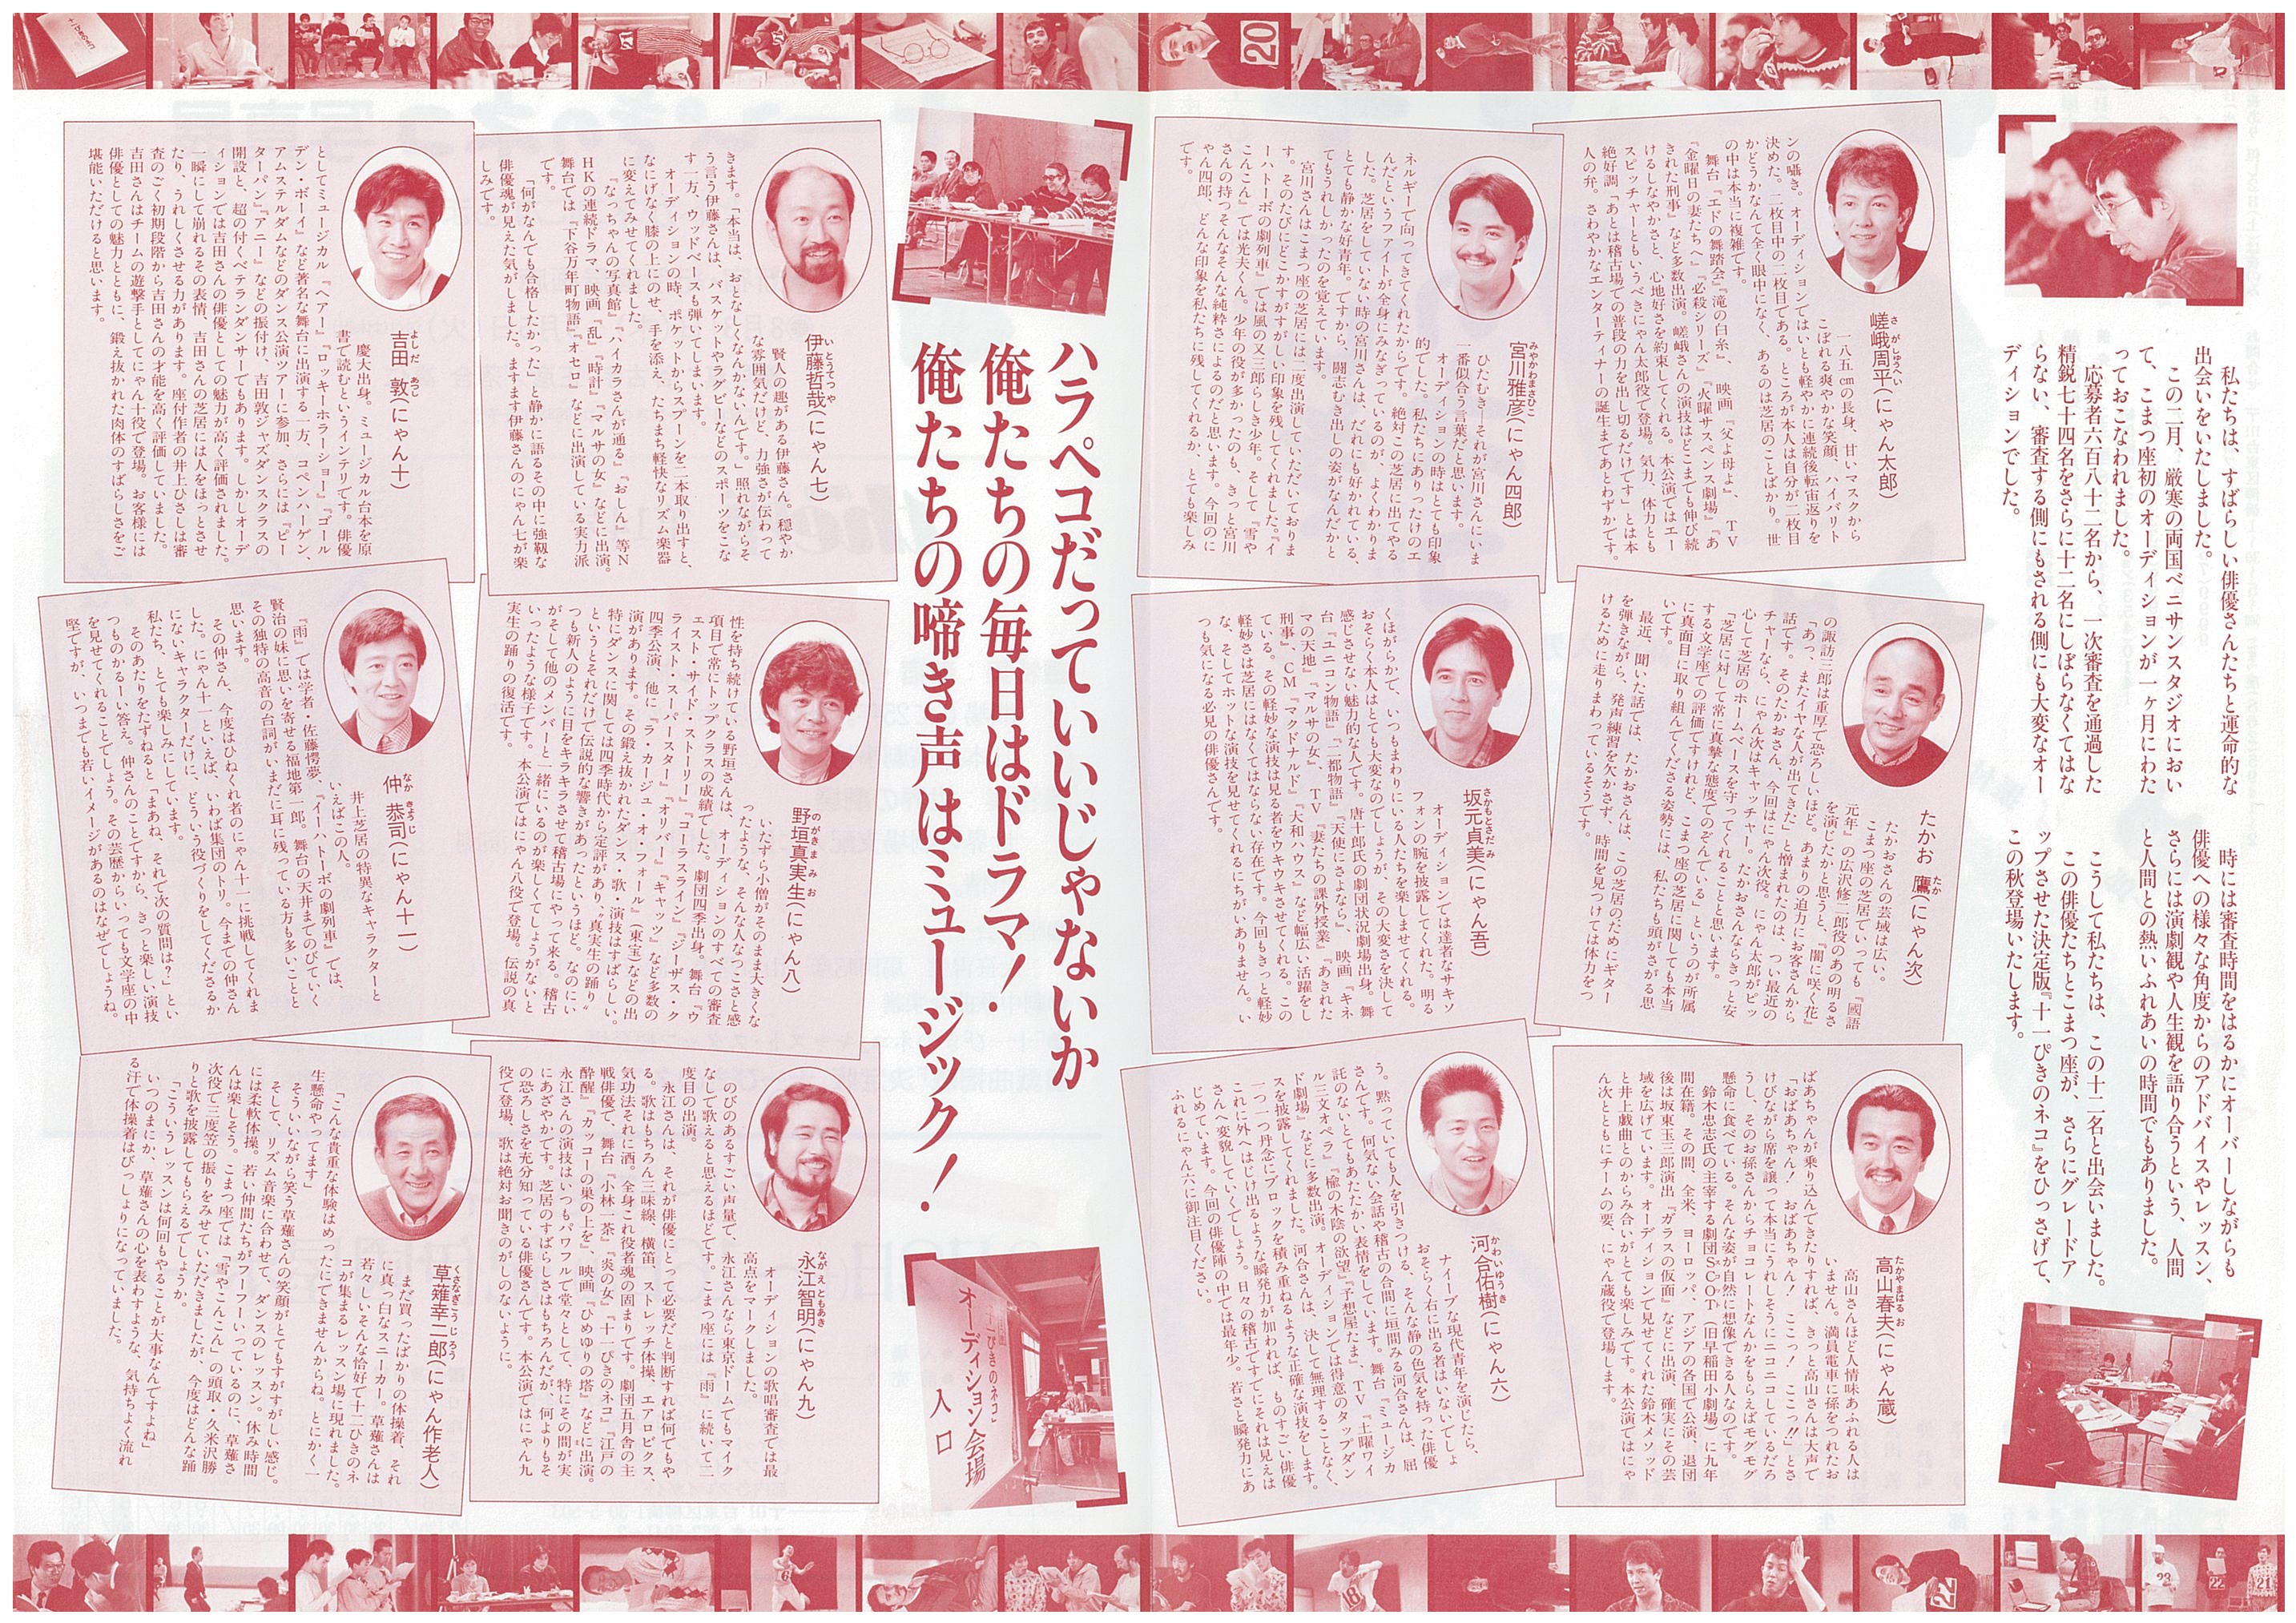 私たちは、すばらしい俳優さんたちと運命的な
出会いをいたしました。
この二月、厳寒の両国ベニサンスタジオにおい
て、こまつ座初のオーディションが一ヶ月にわた
っておこなわれました。
応募者六百八十二名から、一次審査を通過した
精鋭七十四名をさらに十二名にしぼらなくてはな
らない、審査する側にもされる側にも大変なオー
ディションでした。
時には審査時間をはるかにオーバーしながらも
俳優への様々な角度からのアドバイスやレッスン、
さらには演劇観や人生観を語り合うという、人間
と人間との熱いふれあいの時間でもありました。
こうして私たちは、この十二名と出会いました。
この俳優たちとこまつ座が、さらにグレードア
ップさせた決定版『十一ぴきのネコ』をひっさげて、
この秋登場いたします。
嵯峨周平(にゃん太郎)
さがしゅうへい
一八五㎝の長身、甘いマスクから
こぼれる爽やかな笑顔、ハイバリト
ンの囁き。オーディションではいとも軽やかに連続後転宙返りを
決めた。二枚目中の二枚目である。ところが本人は自分が二枚目
かどうかなんて全く眼中になく、あるのは芝居のことばかり。世
の中は本当に複雑です。
舞台『エドの舞踏会』『滝の白糸』、映画『父よ母よ』、TV
『金曜日の妻たちへ』『必殺シリーズ』『火曜サスペンス劇場』『あ
きれた刑事』など多数出演。嵯峨さんの演技はどこまでも伸び続
けるしなやかさと、心地好さを約束してくれる。本公演ではエー
スピッチャーともいうべきにゃん太郎役で登場。気力、体力とも
絶好調「あとは稽古場での普段の力を出し切るだけです」とは本
人の弁。さわやかなエンターティナーの誕生まであとわずかです。
たかお 鷹(にゃん次)
たか
たかおさんの芸域は広い。
こまつ座の芝居でいっても『國語
元年』の広沢修二郎役のあの明るさ
を演じたかと思うと、『闇に咲く花』
の諏訪三郎は重厚で恐ろしいほど。あまりの迫力にお客さんから
「あっ、またイヤな人が出てきた」と憎まれたのは、つい最近の
話です。そのたかおさん、今回はにゃん次役。にゃん太郎がピッ
チャーなら、にゃん次はキャッチャー。たかおさんならきっと安
心して芝居のホームベースを守ってくれることと思います。
「芝居に対して常に真摯な態度でのぞんでいる」というのが所属
する文学座での評価ですけれど、こまつ座の芝居に関しても本当
に真面目に取り組んでくださる姿勢には、私たちも頭がさがる思
いです。
最近、聞いた話では、たかおさんは、この芝居のためにギター
を弾きながら、発声練習を欠かさず、時間を見つけては体力をつ
けるために走りまわっているそうです。
高山春夫(にゃん蔵)
たかやまはるお
高山さんほど人情味あふれる人は
いません。満員電車に孫をつれたお
ばあちゃんが乗り込んできたりすれば、きっと高山さんは大声で
「おばあちゃん！おばあちゃん！ここっ！ここっ!!」とさ
けびながら席を譲って本当にうれしそうにニコニコしているだろ
うし、そのお孫さんからチョコレートなんかをもらえばモグモグ
懸命に食べている。そんな姿が自然に想像できる人なのです。
鈴木忠志氏の主宰する劇団SCOT(旧早稲田小劇場)に九年
間在籍。その間、全米、ヨーロッパ、アジアの各国で公演、退団
後は坂東玉三郎演出『ガラスの仮面』などに出演、確実にその芸
域を広げています。オーディションで見せてくれた鈴木メソッド
と井上戯曲とのからみ合いがとても楽しみです。本公演ではにゃ
ん次とともにチームの要、にゃん蔵役で登場します。
宮川雅彦(にゃん四郎)
みやかわまさひこ
ひたむき―それが宮川さんにいま
一番似合う言葉だと思います。
オーディションの時はとても印象
的でした。私たちにありったけのエ
ネルギーで向ってきてくれたからです。絶対この芝居に出てやる
んだというファイトが全身にみなぎっているのが、よくわかりま
した。芝居をしていない時の宮川さんは、だれにも好かれている、
とても静かな好青年。ですから、闘志むき出しの姿がなんだかと
てもうれしかったのを覚えています。
宮川さんはこまつ座の芝居には二度出演していただいておりま
す。そのたびにどこかすがすがしい印象を残してくれました。『イ
ーハトーボの劇列車』では風の又三郎らしき少年。そして『雪や
こんこん』では光夫くん。少年の役が多かったのも、きっと宮川
さんの持つそんなそんな純粋さによるのだと思います。今回のに
ゃん四郎、どんな印象を私たちに残してくれるか、とても楽しみ
です。
坂元貞美(にゃん吾)
さかもとさだみ
オーディションでは達者なサキソ
フォンの腕を披露してくれた。明る
くほがらかで、いつもまわりにいる人たちを楽しませてくれる。
おそらく本人はとても大変なのでしょうが、その大変さを決して
感じさせない魅力的な人です。唐十郎氏の劇団状況劇場出身。舞
台『ユニコン物語』『二都物語』『天使にさよなら』、映画『キネ
マの天地』『マルサの女』、TV『妻たちの課外授業』『あきれた
刑事』、CM『マクドナルド』『大和ハウス』など幅広い活躍をし
ている。その軽妙な演技は見る者をウキウキさせてくれる。この
軽妙さは芝居にはなくてはならない存在です。今回もきっと軽妙
な、そしてホットな演技を見せてくれるにちがいありません。い
つも気になる必見の俳優さんです。
河合佑樹(にゃん六)
かわいゆうき
ナイーブな現代青年を演じたら、
おそらく右に出る者はいないでしょ
う。黙っていても人を引きつける、そんな静の色気を持った俳優
さんです。何気ない会話や稽古の合間に垣間みる河合さんは、屈
託のないとてもあたたかい表情をしています。舞台『ミュージカ
ル三文オペラ』『楡の木陰の欲望』『予想屋たま』、TV『土曜ワイ
ド劇場』などに多数出演。オーディションでは得意のタップダン
スを披露してくれました。河合さんは、決して無理することなく、
一つ一つ丹念にブロックを積み重ねるような正確な演技をします。
これに外へはじけ出るような瞬発力が加われば、ものすごい俳優
さんへ変貌していくでしょう。日々の稽古ですでにそれは見えは
じめています。今回の俳優陣の中では最年少。若さと瞬発力にあ
ふれるにゃん六に御注目ください。
ハラペコだっていいじゃないか
俺たちの毎日はドラマ！
俺たちの啼き声はミュージック！
十一ぴきのネコ
オーディション会場
入口
伊藤哲哉(にゃん七)
いとうてつや
賢人の趣がある伊藤さん。穏やか
な雰囲気だけど、力強さが伝わって
きます。「本当は、おとなしくなんかないんです。」照れながらそ
う言う伊藤さんは、バスケットやラグビーなどのスポーツをこな
す一方、ウッドベースも弾いてしまいます。
オーディションの時、ポケットからスプーンを二本取り出すと、
なにげなく膝の上にのせ、手を添え、たちまち軽快なリズム楽器
に変えてみせてくれました。
『なっちゃんの写真館』『ハイカラさんが通る』『おしん』等N
HKの連続ドラマ、映画『乱』『時計』『マルサの女』などに出演。
舞台では『下谷万年町物語』『オセロ』などに出演している実力派
です。
「何がなんでも合格したかった」と静かに語るその中に強靱な
俳優魂が見えた気がしました。ますます伊藤さんのにゃん七が楽
しみです。
野垣真実生(にゃん八)
のがきまみお
いたずら小僧がそのまま大きくな
ったような、そんな人なつこさと感
性を持ち続けている野垣さんは、オーディションのすべての審査
項目で常にトップクラスの成績でした。劇団四季出身。舞台『ウ
エスト・サイド・ストーリー』『コーラスライン』『ジーザス・ク
ライスト・スーパースター』『オリバー』『キャッツ』など多数の
四季公演、他に『ラ・カージュ・オ・フォール』(東宝)などの出
演があります。その鍛え抜かれたダンス・歌・演技はすばらしい。
特にダンスに関しては四季時代から定評があり、“真実生の踊り”
というとそれだけで伝説的な響きがあったというほど。なのにい
つも新人のように目をキラキラさせて稽古場にやって来る。稽古
がそして他のメンバーと一緒にいるのが楽しくてしょうがないと
いったような様子です。本公演ではにゃん八役で登場。伝説の真
実生の踊りの復活です。
永江智明(にゃん九)
ながえともあき
オーディションの歌唱審査では最
高点をマークしました。
のびのあるすごい声量で、永江さんなら東京ドームでもマイク
なしで歌えると思えるほどです。こまつ座には『雨』に続いて二
度目の出演。
永江さんは、それが俳優にとって必要だと判断すれば何でもや
る。歌はもちろん三味線、横笛、ストレッチ体操、エアロビクス、
気功法それに酒。全身これ役者魂の固まりです。劇団五月舎の主
戦俳優で、舞台『小林一茶』『炎の女』『十一ぴきのネコ』『江戸の
酔醒』『カッコーの巣の上を』、映画『ひめゆりの塔』などに出演。
永江さんの演技はいつもパワフルで堂々として、特にその間が実
にあざやかです。芝居のすばらしさはもちろんだが、何よりもそ
の恐ろしさを充分知っている俳優さんです。本公演ではにゃん九
役で登場、歌は絶対お聞きのがしのないように。
吉田 敦(にゃん十)
よしだ あつし
慶大出身。ミュージカル台本を原
書で読むというインテリです。俳優
としてミュージカル『ヘアー』『ロッキーホラーショー』『ゴール
デン・ボーイ』など著名な舞台に出演する一方、コペンハーゲン、
アムステルダムなどのダンス公演ツアーに参加、さらには『ピー
ターパン』『アニー』などの振付け、吉田敦ジャズダンスクラスの
開設と、超の付くベテランダンサーでもあります。しかしオーデ
ィションでは吉田さんの俳優としての魅力が高く評価されました。
一瞬にして崩れるその表情、吉田さんの芝居には人をほっとさせ
たり、うれしくさせる力があります。座付作者の井上ひさしは審
査のごく初期段階から吉田さんの才能を高く評価していました。
吉田さんはチームの遊撃手としてにゃん十役で登場。お客様には
俳優としての魅力とともに、鍛え抜かれた肉体のすばらしさをご
堪能いただけると思います。
仲 恭司(にゃん十一)
なか きょうじ
井上芝居の特異なキャラクターと
いえばこの人。
『雨』では学者・佐藤愕夢、『イーハトーボの劇列車』では、
賢治の妹に思いを寄せる福地第一郎。舞台の天井までのびていく
その独特の高音の台詞がいまだに耳に残っている方も多いことと
思います。
その仲さん、今度はひねくれ者のにゃん十一に挑戦してくれま
した。にゃん十一といえば、いわば集団のトリ。今までの仲さん
にないキャラクターだけに、どういう役づくりをしてくださるか
私たち、とても楽しみにしています。
そのあたりをたずねると「まあね、それで次の質問は？」とい
つものかるーい答え。仲さんのことですから、きっと楽しい演技
を見せてくれることでしょう。その芸歴からいっても文学座の中
堅ですが、いつまでも若いイメージがあるのはなぜでしょうね。
草薙幸二郎(にゃん作老人)
くさなぎこうじろう
まだ買ったばかりの体操着、それ
に真っ白なスニーカー。草薙さんは
若々しいそんな恰好で十二ひきのネ
コが集まるレッスン場に現れました。
「こんな貴重な体験はめったにできませんからね。とにかく一
生懸命やってます」
そういいながら笑う草薙さんの笑顔がとてもすがすがしい感じ。
そして、リズム音楽に合わせて、ダンスのレッスン。休み時間
には柔軟体操。若い仲間たちがフーフーいっているのに、草薙さ
んは楽しそう。こまつ座では『雪やこんこん』の頭取・久米沢勝
次役で三度笠の振りをみせていただきましたが、今度はどんな踊
りと歌を披露してもらえるでしょうか。
「こういうレッスンは何回もやることが大事なんですよね」
いつのまにか、草薙さんの心を表わすような、気持ちよく流れ
る汗で体操着はびっしょりになっていました。
20
18
22
23
22
21